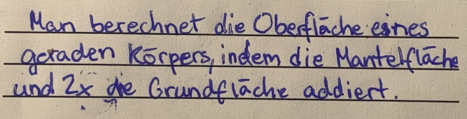 Man berechnet die Oberfläche eines
geraden Körpers, indem die Mantelfläche
und 2x die Grundfläche addiert.